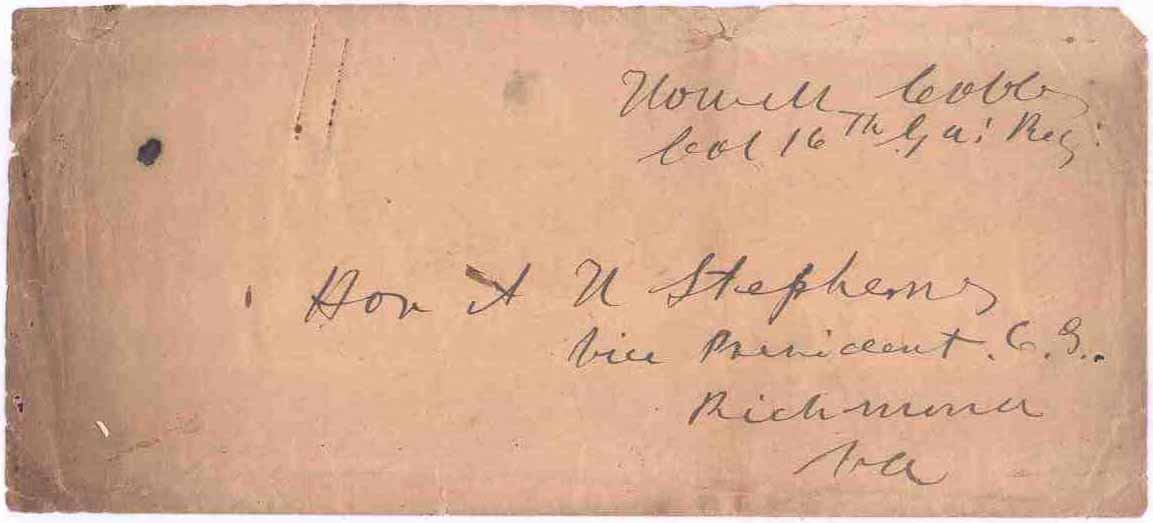 Howell Cobb
Col 16th Ga: Reg:
Hon A H Stephens
Vice President. C. S..
Richmond
Va